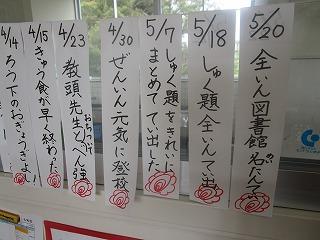 5/20 全いん図書館 名たんてい
5/18 しゅく題 全いんてい出
5/17 しゅく題をきれいに
まとめて てい出した
4/30 ぜんいん 元気に登校
4/23 教頭先生
4/15 きゅう食が早く終わった
4/14 ろう下のおぎょうぎ